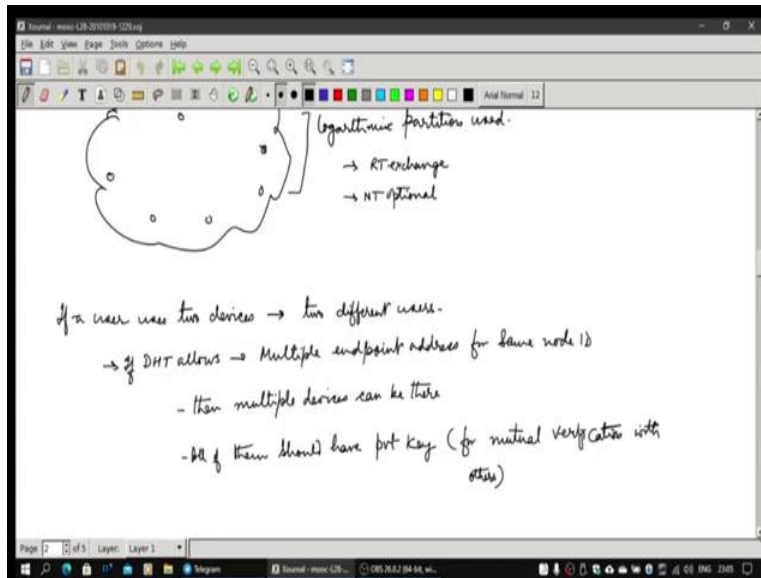 Xournal - mooc-L28-20101019-1229.xoj
File Edit View Page Tools Options Help
Arial Normal 12
logarithmic partition used.
→ RT exchange
→ NT optional
If a user uses two devices → two different users.
→ If DHT allows → Multiple endpoint address for same node ID
- then multiple devices can be there
- All of them should have pvt key (for mutual verification with
others)
Page 2 of 5 Layer: Layer 1
Telegram Xournal - mooc-L28-... OBS 26.0.2 (64-bit, wi... ENG 23:05